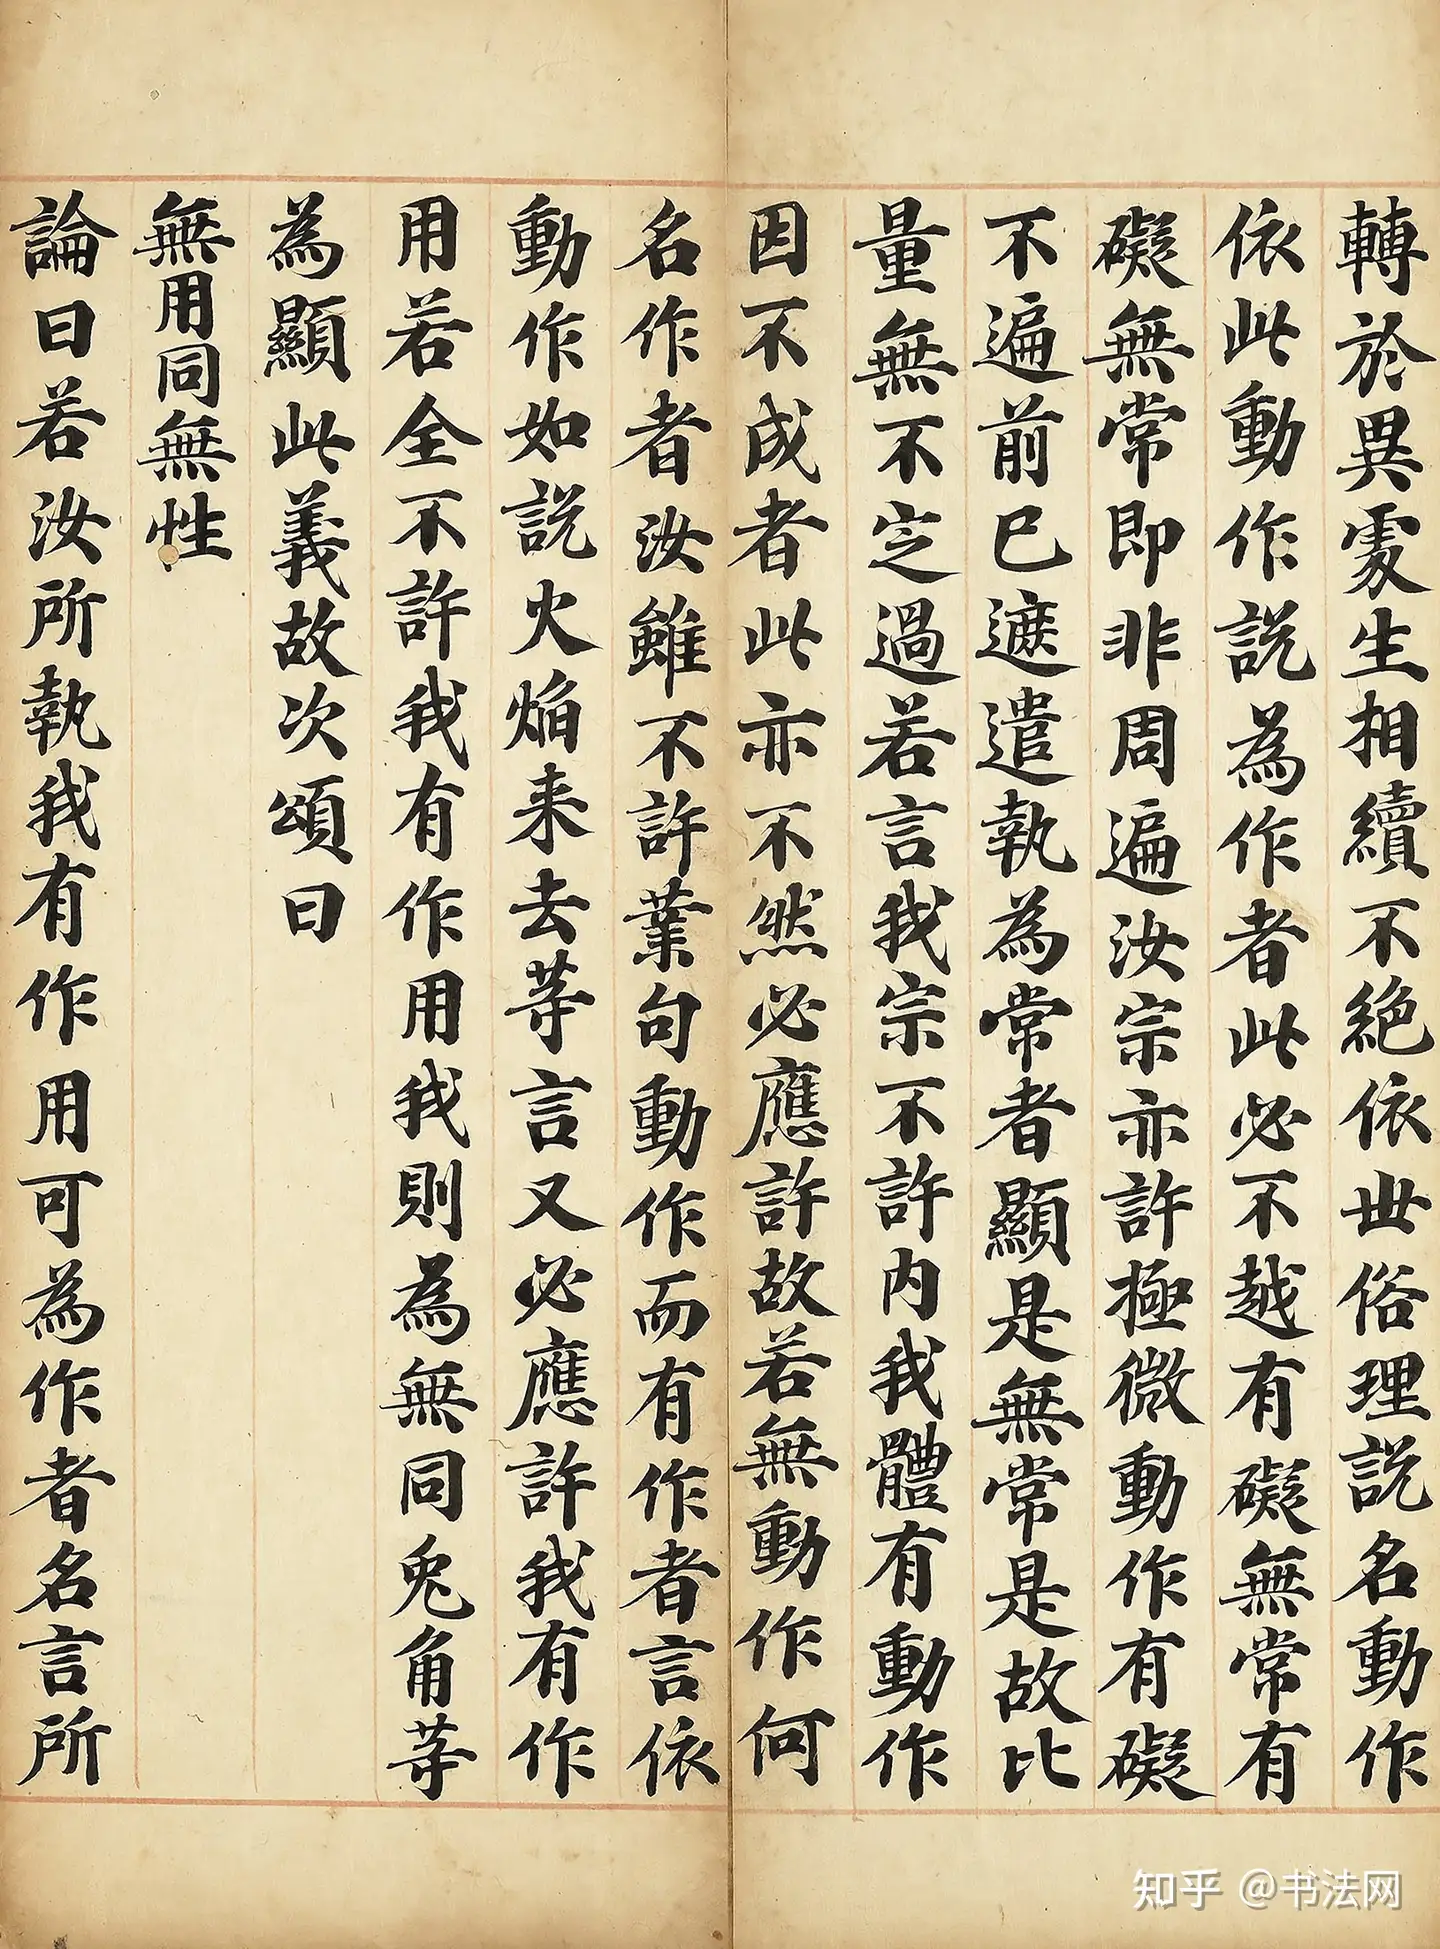 轉於異處生相續不絕依世俗理説名動作
依此動作説為作者此必不越有礙無常有
礙無常即非周遍汝宗亦許極微動作有礙
不遍前已遮遣執為常者顯是無常是故比
量無不定過若言我宗不許内我體有動作
因不成者此亦不然必應許故若無動作何
名作者汝雖不許業句動作而有作者言依
動作如説火焰来去等言又必應許我有作
用若全不許我有作用我則為無同兎角等
為顯此義故次頌曰
無用同無性
論曰若汝所執我有作用可為作者名言所
知乎 @书法网